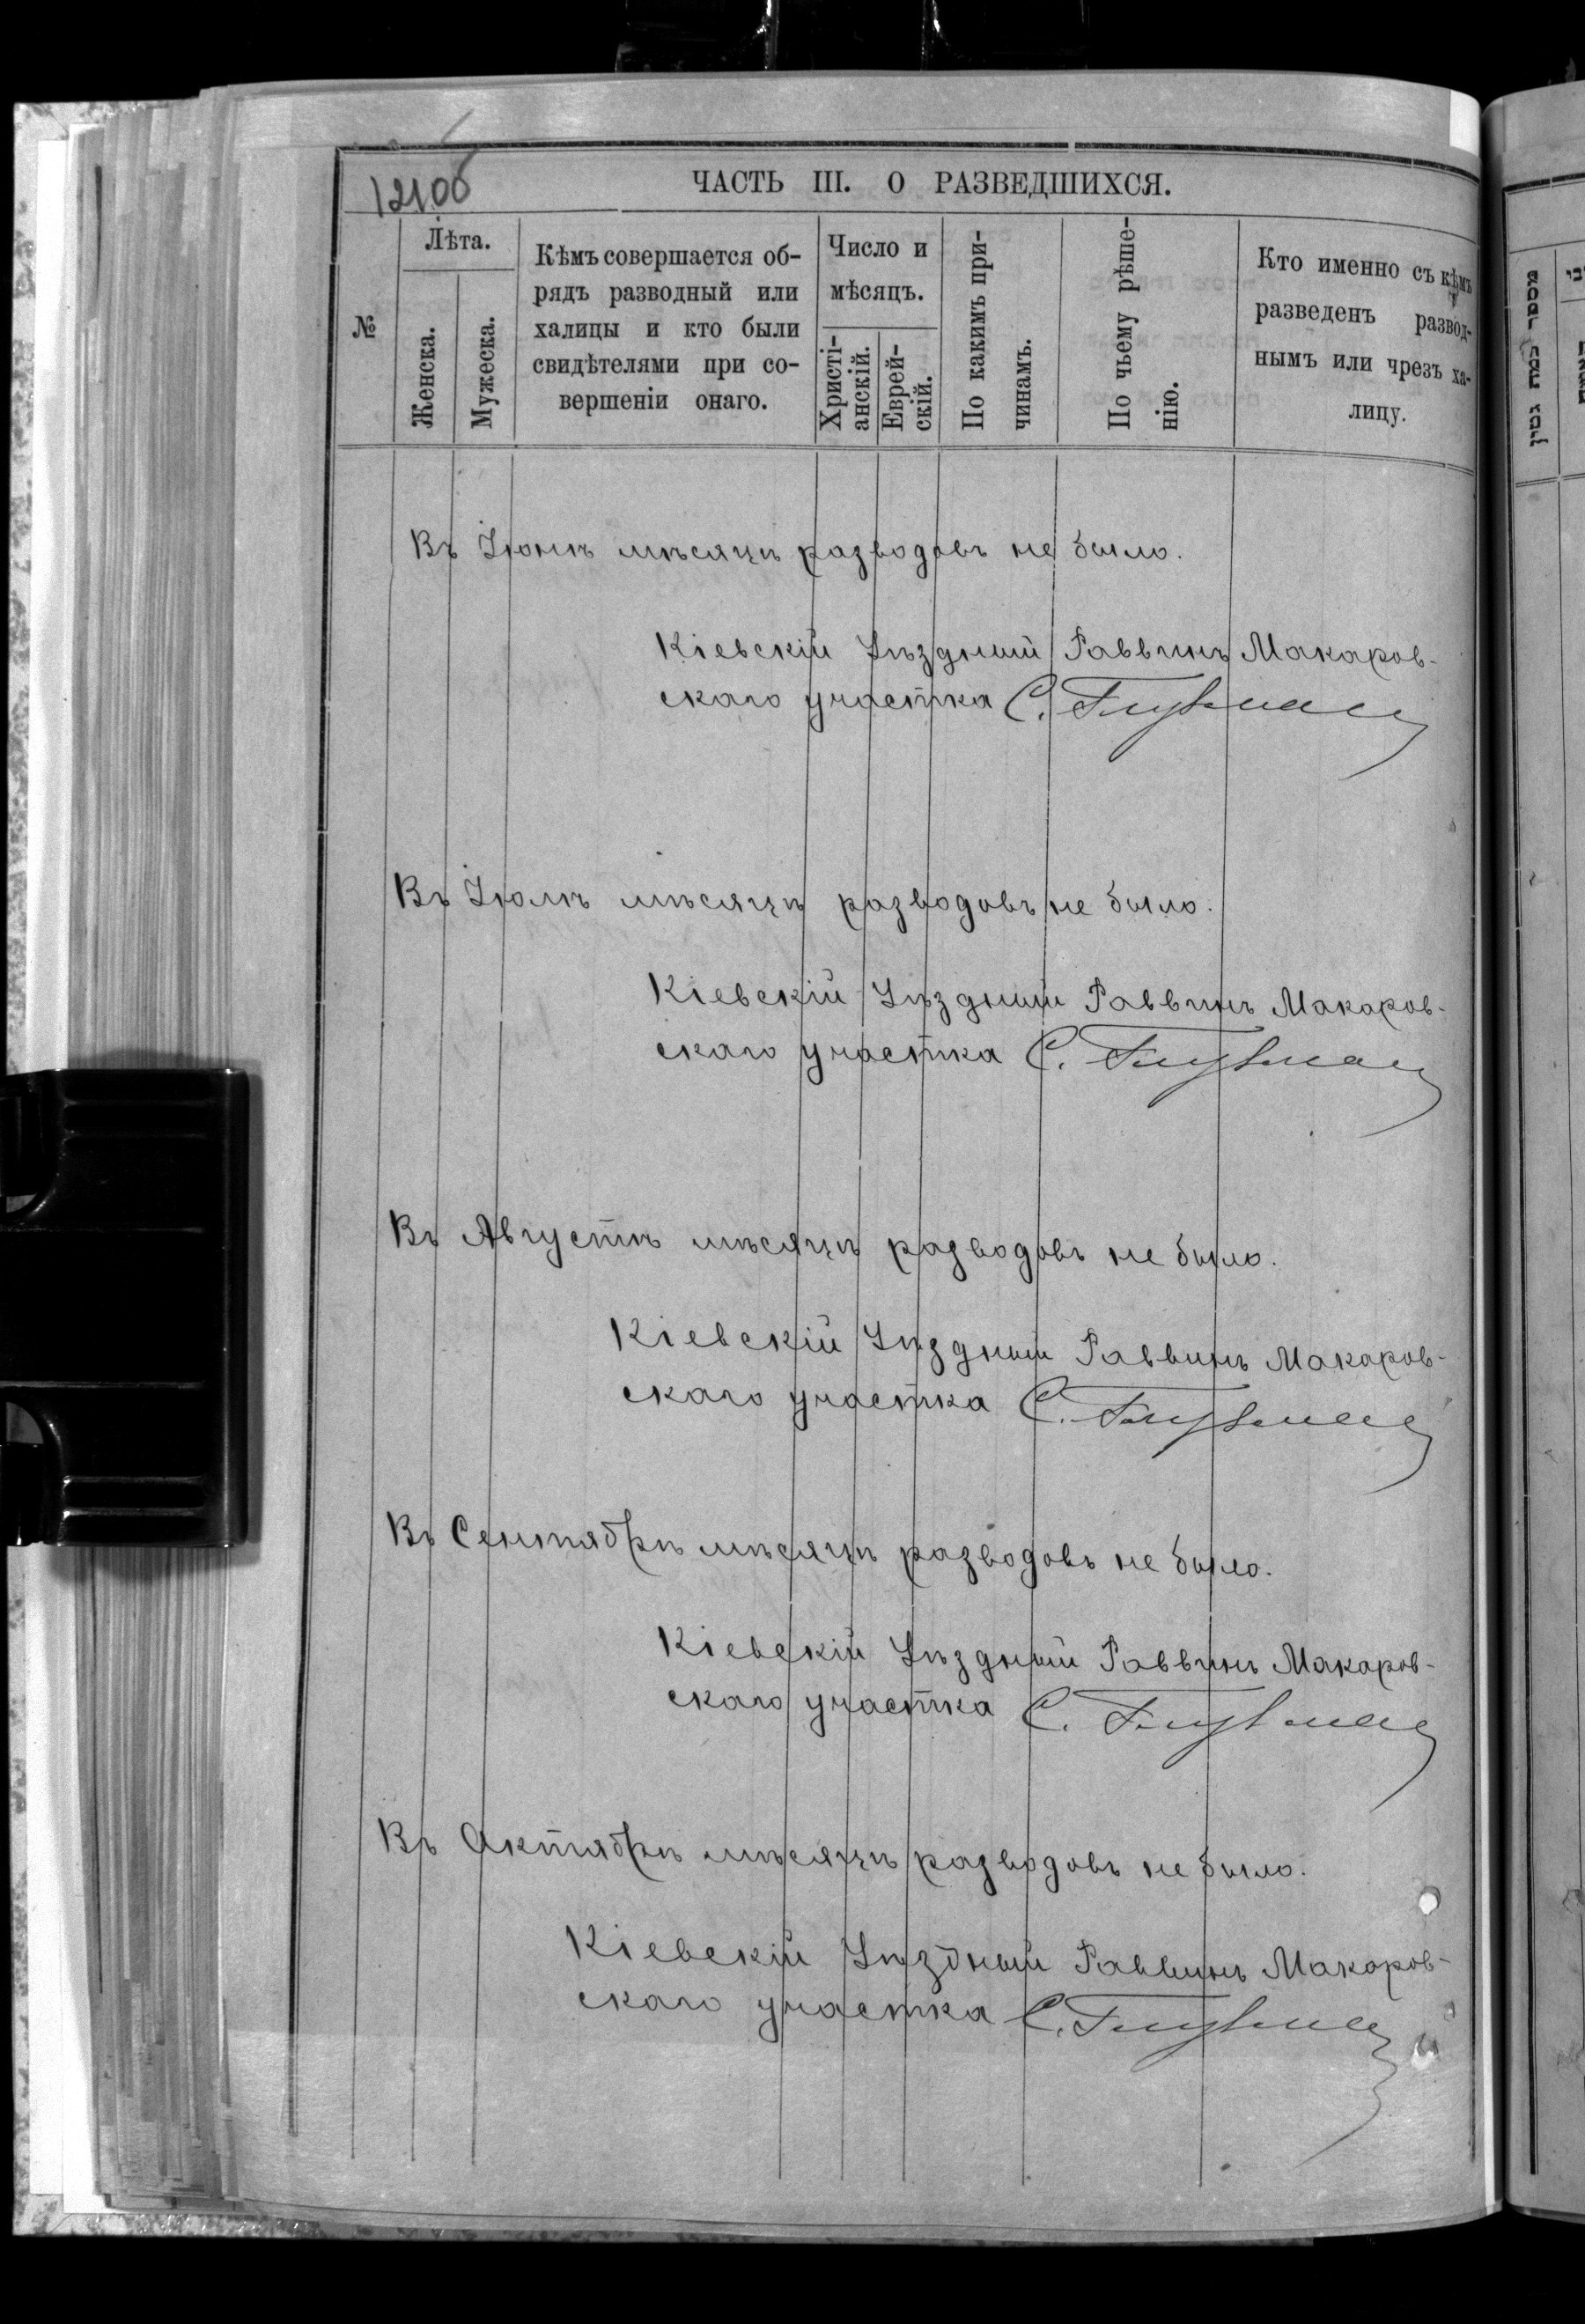 121об
ЧАСТЬ III. О РАЗВЕДШИХСЯ.
№
Лѣта.
Женска.
Мужеска.
Кѣмъ совершается об-
рядъ разводный или
халицы и кто были
свидѣтелями при со-
вершеніи онаго.
Число и
мѣсяцъ.
Христі-
анскій.
Еврей-
скій.
По какимъ при-
чинамъ.
По чьему рѣше-
нію.
Кто именно съ кѣмъ
разведенъ развод-
нымъ или чрезъ ха-
лицу.
Въ Іюнѣ мѣсяцѣ разводовъ не было.
Кіевскій Уѣздный Раввинъ Макаров-
скаго участка С.
Въ Іюлѣ мѣсяцѣ разводовъ не было.
Кіевскій Уѣздный Раввинъ Макаров-
скаго участка С.
Въ Августѣ мѣсяцѣ разводовъ не было.
Кіевскій Уѣздный Раввинъ Макаров-
скаго участка С.
Въ Сентябрѣ мѣсяцѣ разводовъ не было.
Кіевскій Уѣздный Раввинъ Макаров-
скаго участка С.
Въ Октябрѣ мѣсяцѣ разводовъ не было.
Кіевскій Уѣздный Раввинъ Макаров-
скаго участка С.
מספר כמה גטין